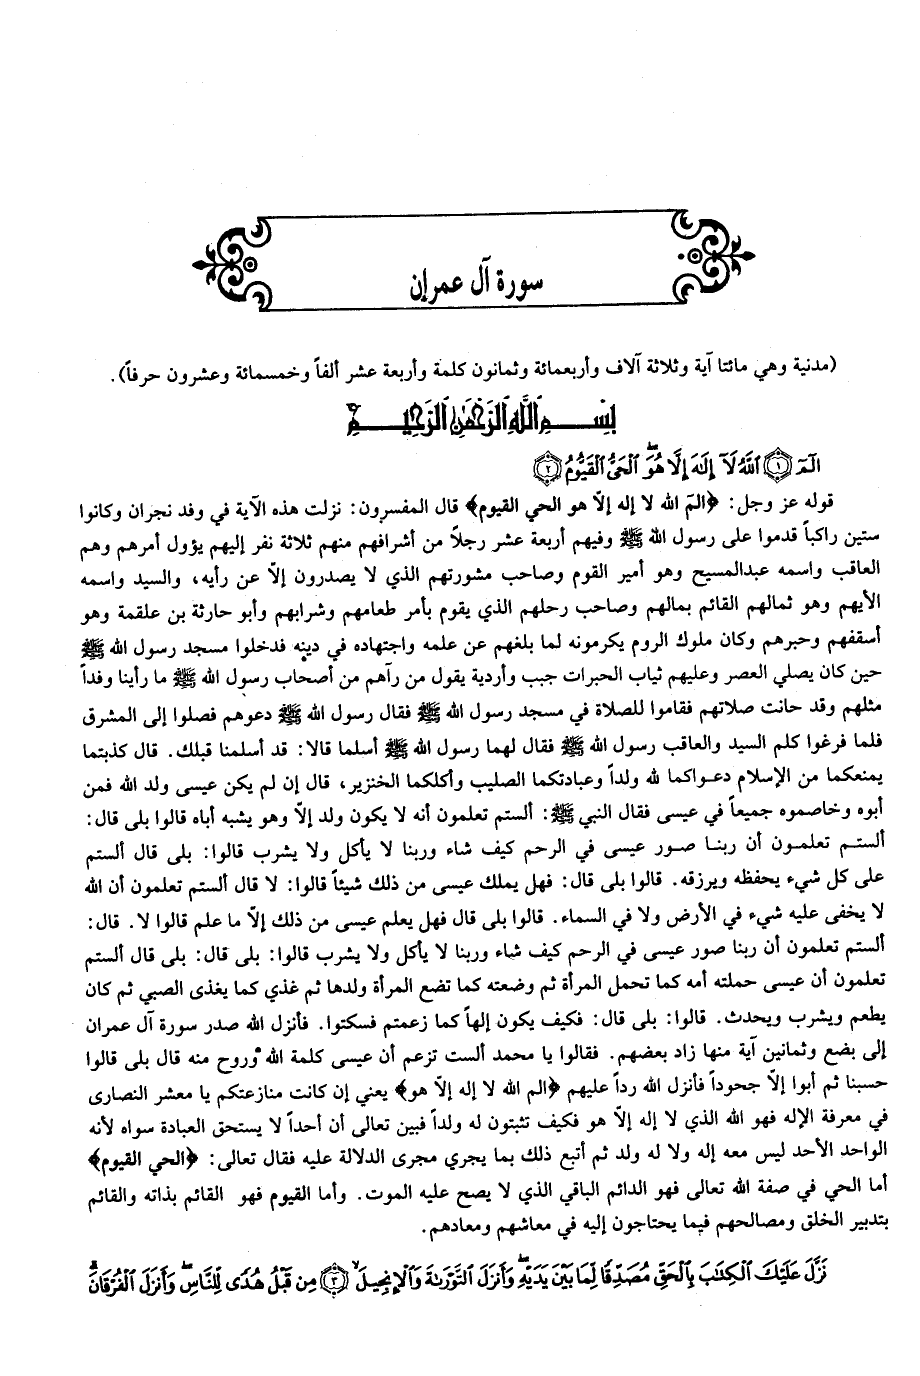 سورة آل عمران
(مدنية وهي مائتا آية وثلاثة آلاف وأربعمائة وثمانون كلمة وأربعة عشر ألفاً وخمسمائة وعشرون حرفاً).
بِسْمِ اللَّهِ الرَّحْمَٰنِ الرَّحِيمِ
الٓمٓ ﴿١﴾ اللَّهُ لَآ إِلَٰهَ إِلَّا هُوَ ۖ الْحَىُّ الْقَيُّومُ ﴿٢﴾
قوله عز وجل: ﴿الٓمٓ الله لا إله إلاّ هو الحي القيوم﴾ قال المفسرون: نزلت هذه الآية في وفد نجران وكانوا
ستين راكباً قدموا على رسول الله ﷺ وفيهم أربعة عشر رجلاً من أشرافهم منهم ثلاثة نفر إليهم يؤول أمرهم وهم
العاقب واسمه عبدالمسيح وهو أمير القوم وصاحب مشورتهم الذي لا يصدرون إلاّ عن رأيه، والسيد واسمه
الأيهم وهو ثمالهم القائم بمالهم وصاحب رحلهم الذي يقوم بأمر طعامهم وشرابهم وأبو حارثة بن علقمة وهو
أسقفهم وحبرهم وكان ملوك الروم يكرمونه لما بلغهم عن علمه واجتهاده في دينه فدخلوا مسجد رسول الله ﷺ
حين كان يصلي العصر وعليهم ثياب الحبرات جبب وأردية يقول من رآهم من أصحاب رسول الله ﷺ ما رأينا وفداً
مثلهم وقد حانت صلاتهم فقاموا للصلاة في مسجد رسول الله ﷺ فقال رسول الله ﷺ دعوهم فصلوا إلى المشرق
فلما فرغوا كلم السيد والعاقب رسول الله ﷺ فقال لهما رسول الله ﷺ أسلما قالا: قد أسلمنا قبلك. قال كذبتما
يمنعكما من الإسلام دعواكما لله ولداً وعبادتكما الصليب وأكلكما الخنزير، قال إن لم يكن عيسى ولد الله فمن
أبوه وخاصموه جميعاً في عيسى فقال النبي ﷺ: ألستم تعلمون أنه لا يكون ولد إلاّ وهو يشبه أباه قالوا بلى قال:
ألستم تعلمون أن ربنا صور عيسى في الرحم كيف شاء وربنا لا يأكل ولا يشرب قالوا: بلى قال ألستم
على كل شيء يحفظه ويرزقه. قالوا بلى قال: فهل يملك عيسى من ذلك شيئاً قالوا: لا قال ألستم تعلمون أن الله
لا يخفى عليه شيء في الأرض ولا في السماء. قالوا بلى قال فهل يعلم عيسى من ذلك إلاّ ما علم قالوا لا. قال:
ألستم تعلمون أن ربنا صور عيسى في الرحم كيف شاء وربنا لا يأكل ولا يشرب قالوا: بلى قال: بلى قال ألستم
تعلمون أن عيسى حملته أمه كما تحمل المرأة ثم وضعته كما تضع المرأة ولدها ثم غذي كما يغذى الصبي ثم كان
يطعم ويشرب ويحدث. قالوا: بلى قال: فكيف يكون إلهاً كما زعمتم فسكتوا. فأنزل الله صدر سورة آل عمران
إلى بضع وثمانين آية منها زاد بعضهم. فقالوا يا محمد ألست تزعم أن عيسى كلمة الله وروح منه قال بلى قالوا
حسبنا ثم أبوا إلاّ جحوداً فأنزل الله رداً عليهم ﴿الم الله لا إله إلاّ هو﴾ يعني إن كانت منازعتكم يا معشر النصارى
في معرفة الإله فهو الله الذي لا إله إلاّ هو فكيف تثبتون له ولداً فبين تعالى أن أحداً لا يستحق العبادة سواه لأنه
الواحد الأحد ليس معه إله ولا له ولد ثم أتبع ذلك بما يجري مجرى الدلالة عليه فقال تعالى: ﴿الحي القيوم﴾
أما الحي في صفة الله تعالى فهو الدائم الباقي الذي لا يصح عليه الموت. وأما القيوم فهو القائم بذاته والقائم
بتدبير الخلق ومصالحهم فيما يحتاجون إليه في معاشهم ومعادهم.
نَزَّلَ عَلَيْكَ الْكِتَٰبَ بِالْحَقِّ مُصَدِّقًا لِّمَا بَيْنَ يَدَيْهِ وَأَنزَلَ التَّوْرَىٰةَ وَالْإِنجِيلَ ﴿٣﴾ مِن قَبْلُ هُدًى لِّلنَّاسِ وَأَنزَلَ الْفُرْقَانَ